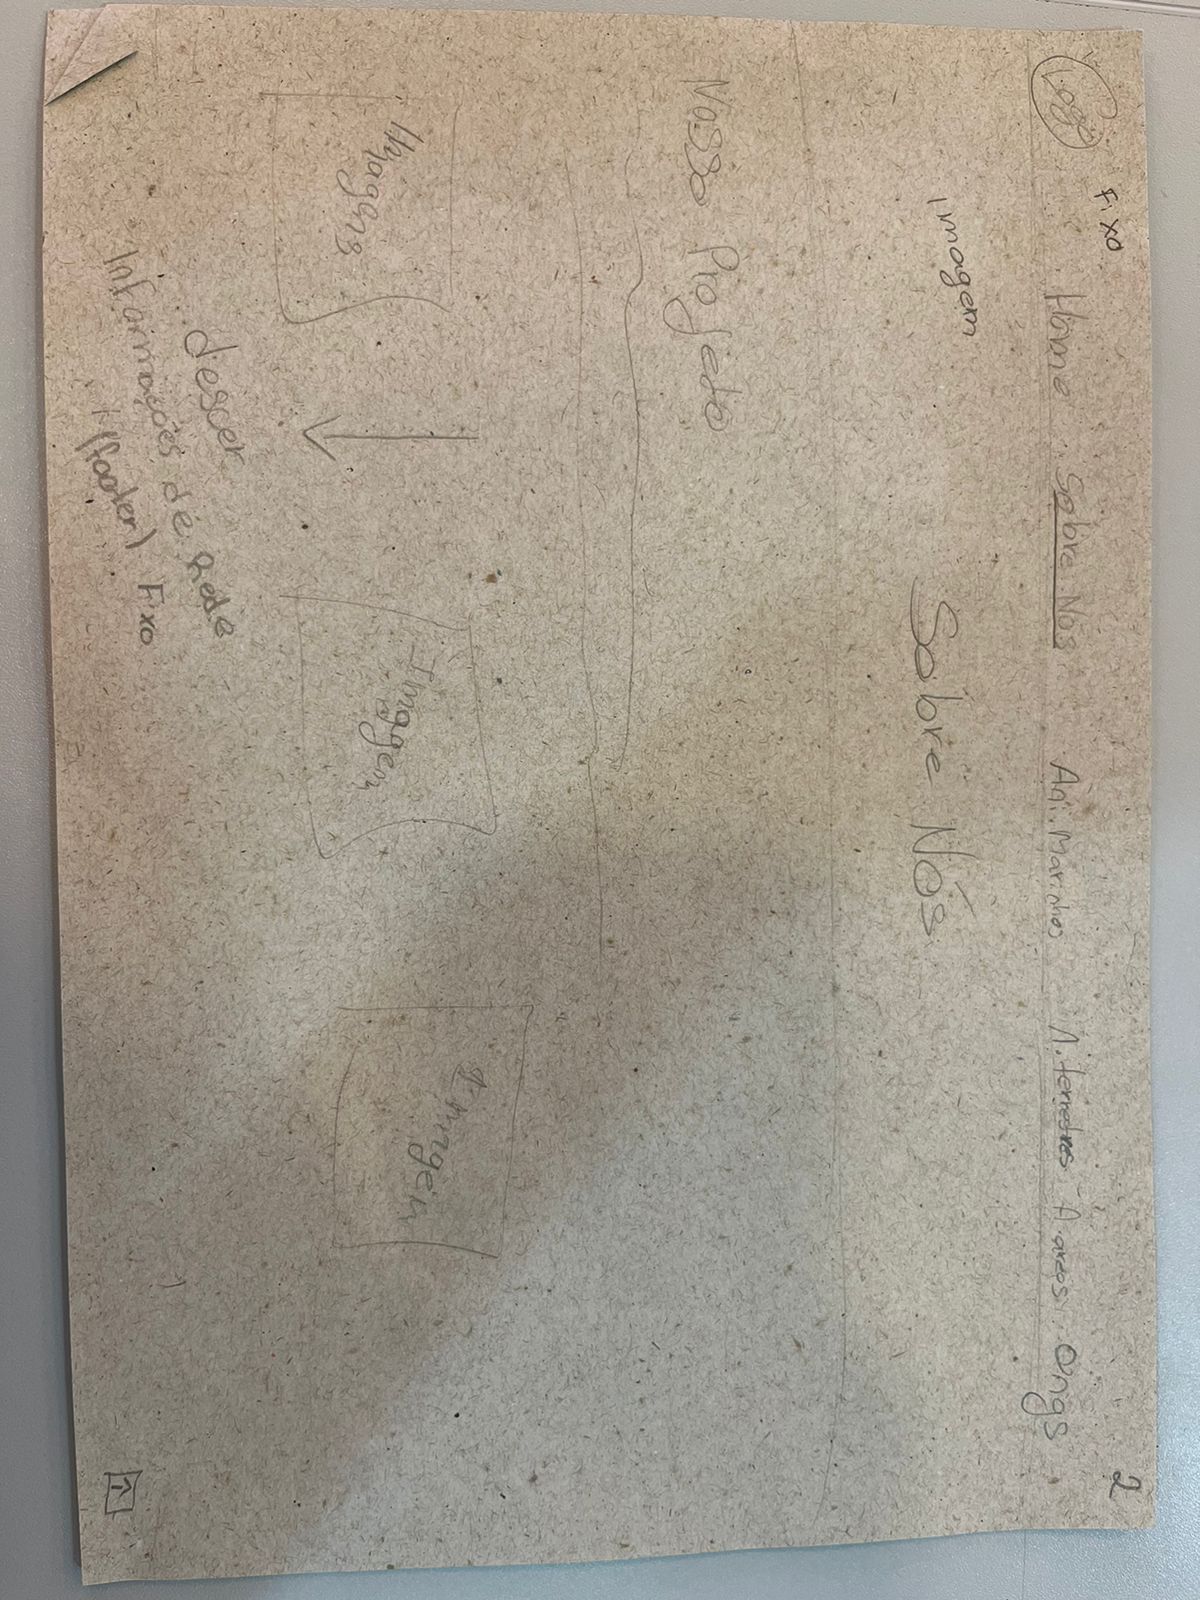 2
Fixo
Logo Home Sobre Nós Ani. Marinhos A. terrestres A. areos Ongs
imagem
Sobre Nós
Nosso Projeto
Imagens
Imagem
Imagem
descer
Informações de Rede
(footer) Fixo